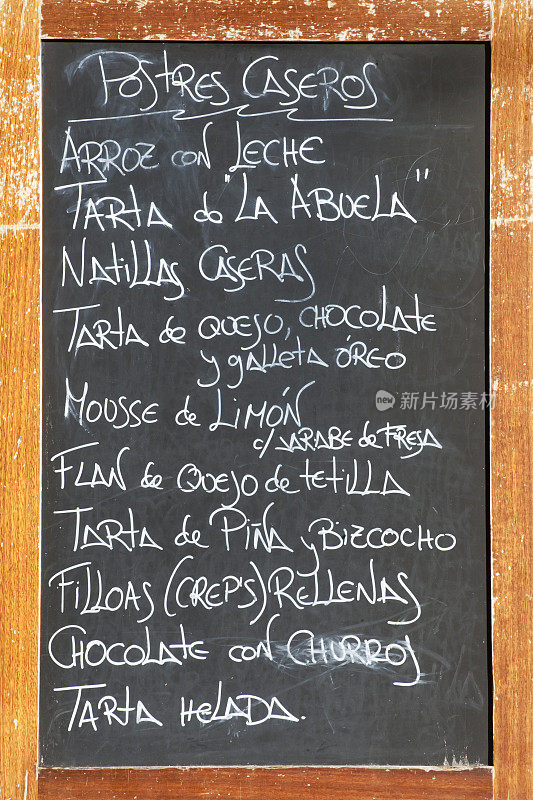 Postres Caseros
Arroz con Leche
Tarta de "La Abuela"
Natillas Caseras
Tarta de Quejo, chocolate
y galleta óreo
Mousse de Limón
c/ jarabe de fresa
Flan de Quejo de tetilla
Tarta de Piña y Bizcocho
Filloas (creps) Rellenas
Chocolate con Churros
Tarta Helada.
new 中國(香港)視覺